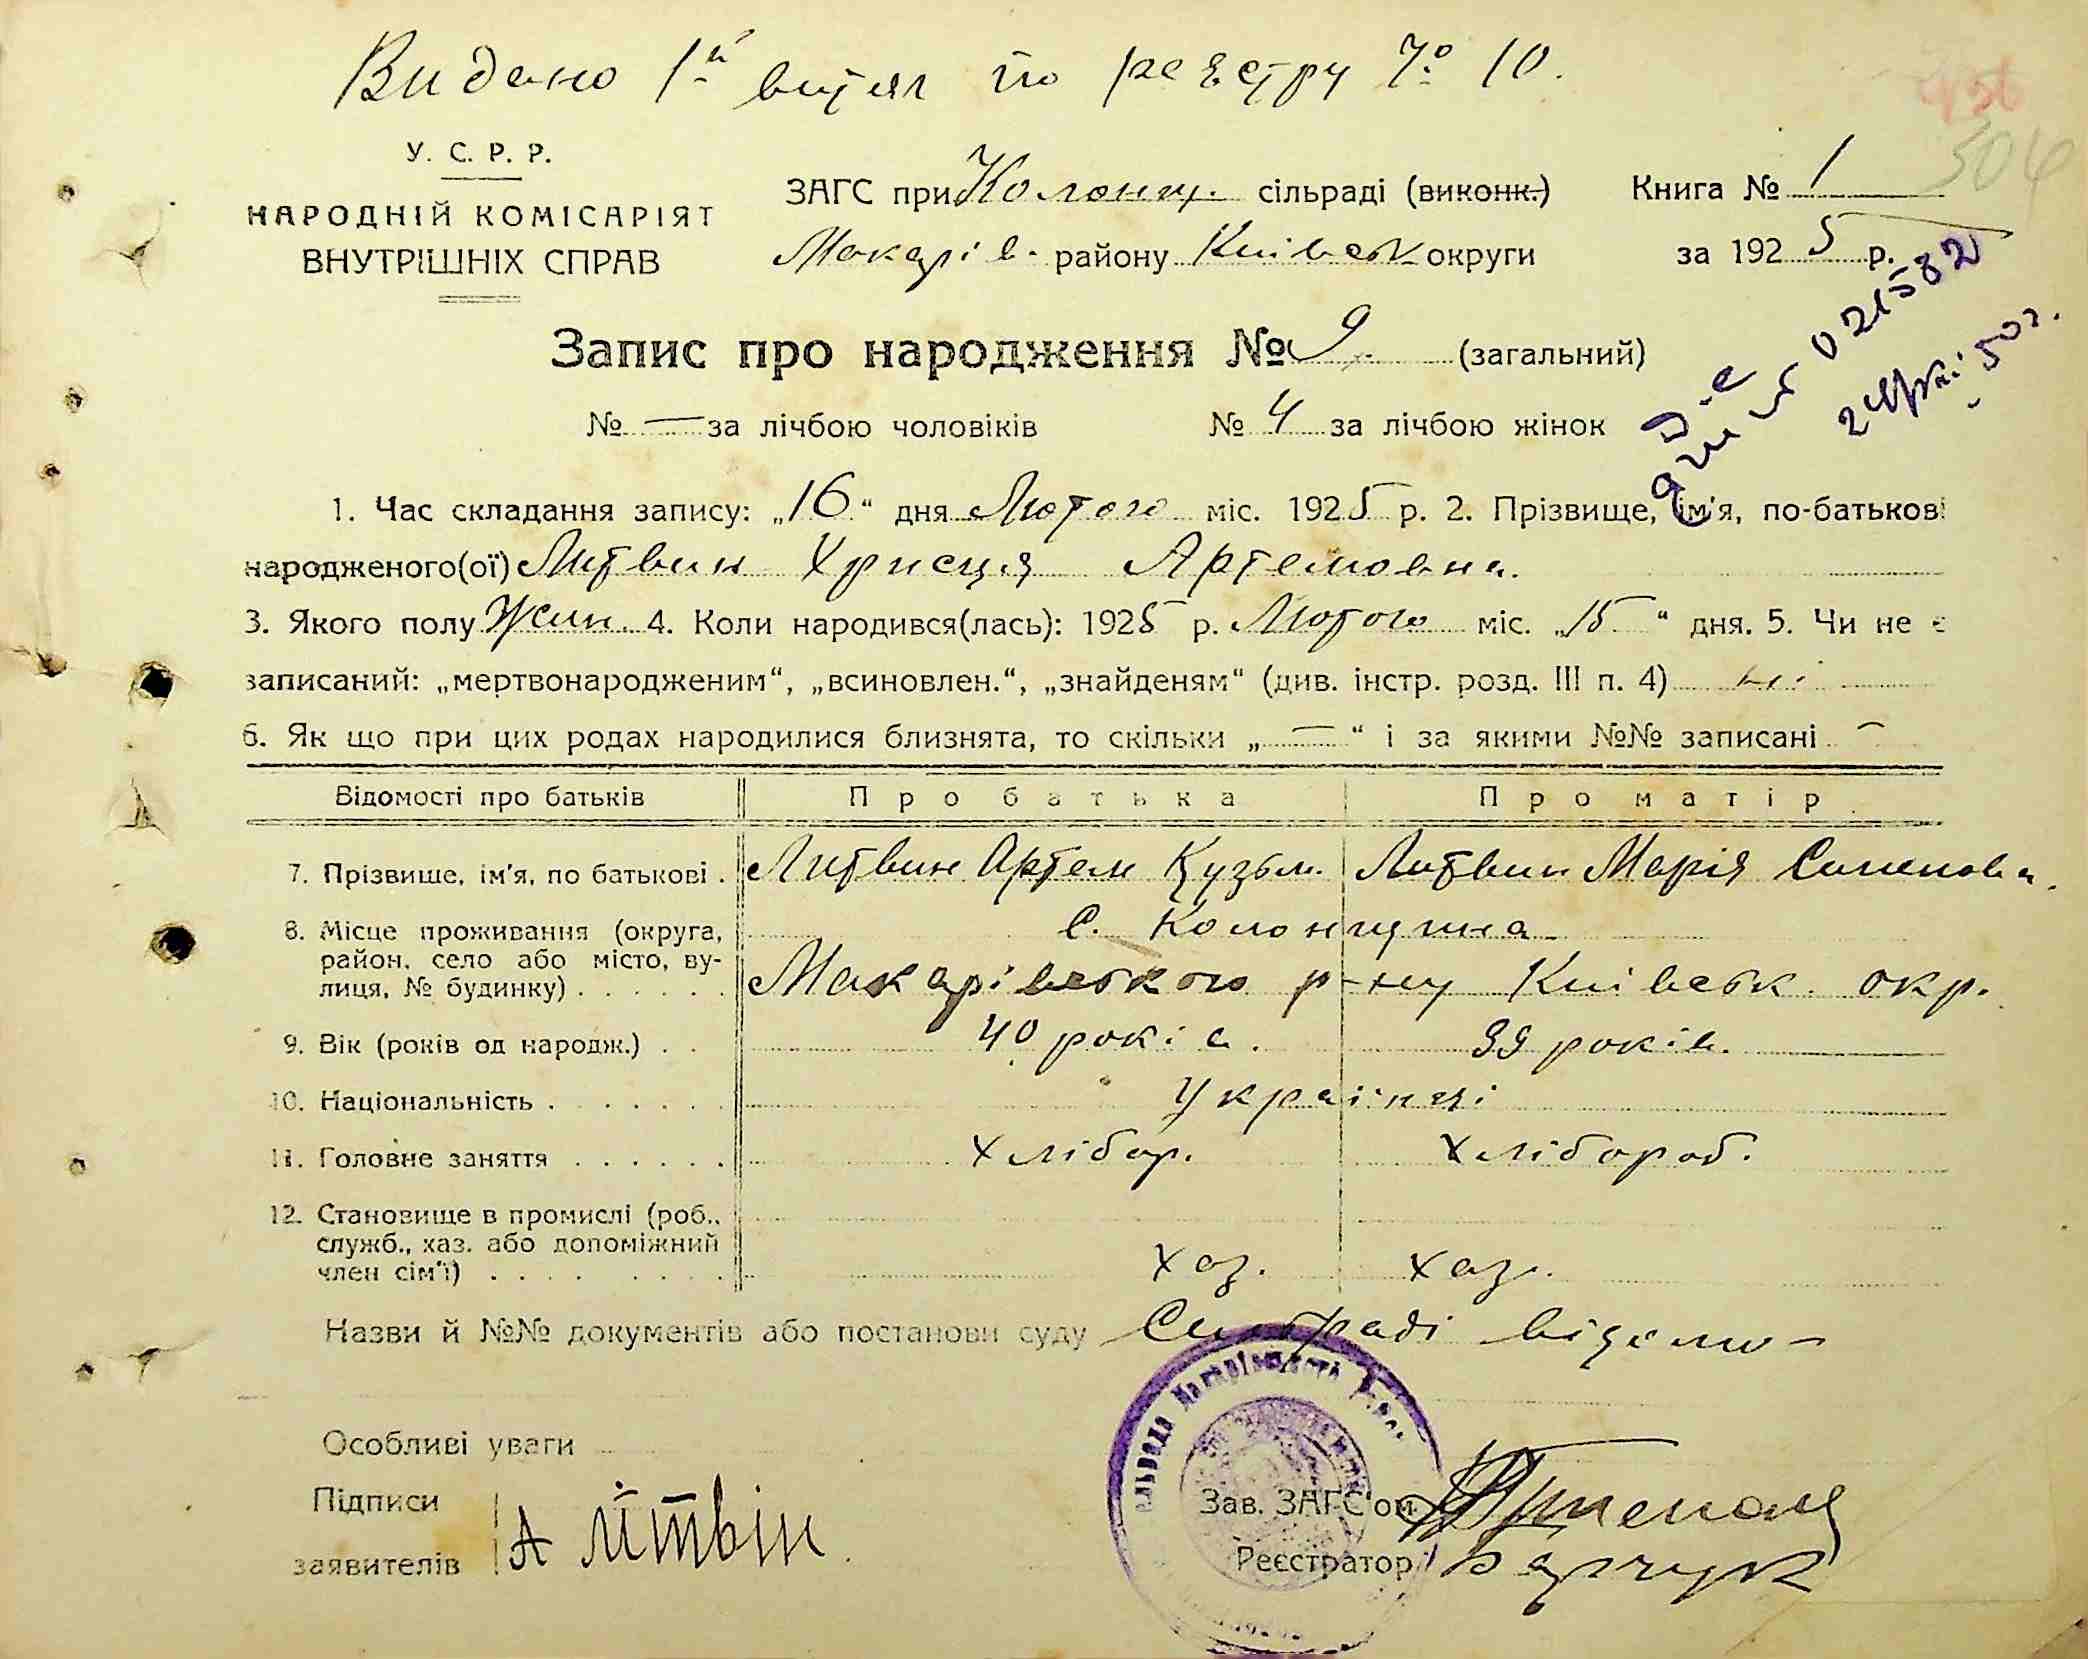 Видано 1й витяг по реєстру № 10.
У. С. Р. Р.
НАРОДНІЙ КОМІСАРІЯТ
ВНУТРІШНІХ СПРАВ
ЗАГС при Колонщ. сільраді (виконк.)
Макарів. району Київськ округи
Книга № 1
за 1925 р.
504
021582
50 г.
Запис про народження № 9 (загальний)
№ — за лічбою чоловіків № 4 за лічбою жінок
1. Час складання запису: „16“ дня Лютого міс. 1925 р. 2. Прізвище, ім'я, по-батькові
народженого(ої) Литвин Христя Артемовна.
3. Якого полу Жін. 4. Коли народився(лась): 1925 р. Лютого міс. „15“ дня. 5. Чи не є
записаний: „мертвонародженим“, „всиновлен.“, „знайденям“ (див. інстр. розд. III п. 4) ні
6. Як що при цих родах народилися близнята, то скільки „—“ і за якими №№ записані —
Відомості про батьків Про батька Про матір
7. Прізвище, ім'я, по батькові . Литвин Артем Кузьм. Литвин Марія Сименовн.
8. Місце проживання (округа, район, село або місто, вулиця, № будинку) . . . . . . с. Колонщина
Макарівського р-ну Київськ. окр.
9. Вік (років од народж.) . . 40 років. 39 років.
10. Національність . . . . . . . Українці
11. Головне заняття . . . . . . хлібор. хлібороб.
12. Становище в промислі (роб., служб., хаз. або допоміжний член сім'ї) . . . . . . . . хаз. хаз.
Назви й №№ документів або постанови суду Сильраді відомо
Особливі уваги
Підписи
заявителів А літвін
Зав. ЗАГС'ом
Реєстратор